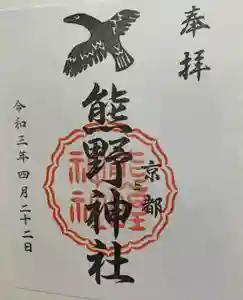 奉拝
熊野神社
京都
令和三年四月二十二日